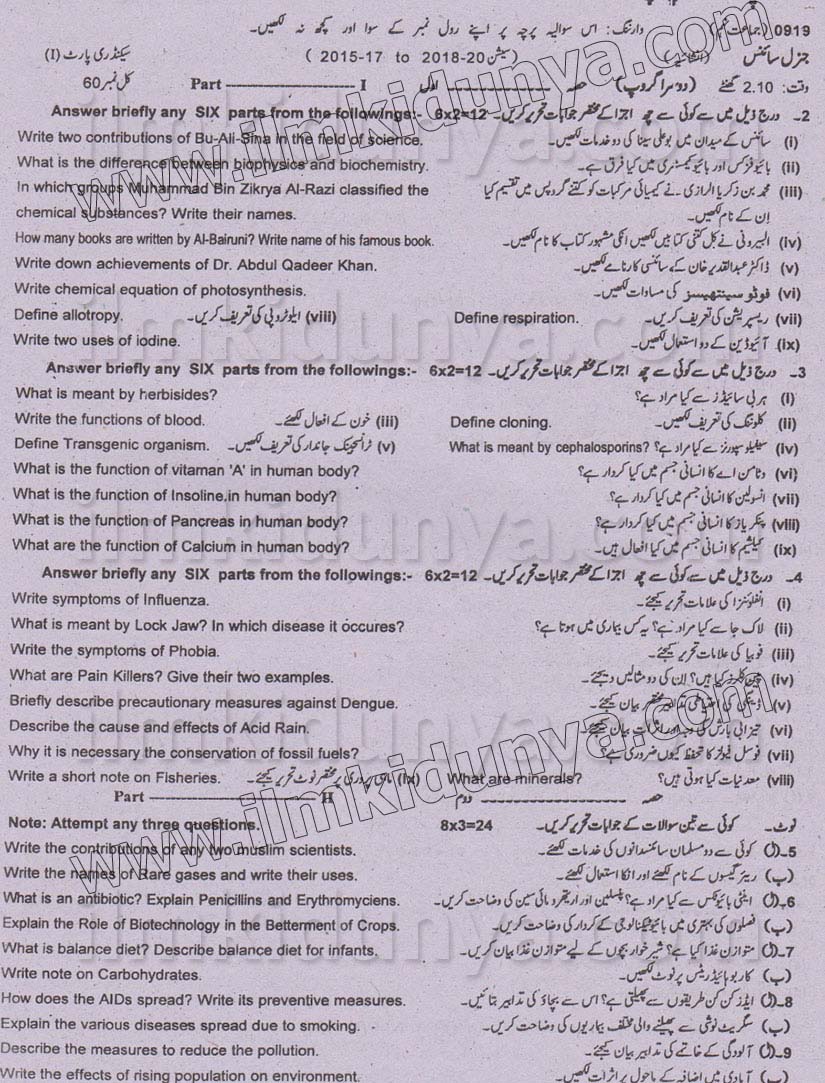 0919 (جماعت نہم) وارننگ: اس سوالیہ پرچہ پر اپنے رول نمبر کے سوا اور کچھ نہ لکھیں۔
جنرل سائنس (انشائیہ) (سیشن 2015-17 to 2018-20) سیکنڈری پارٹ (I)
وقت: 2.10 گھنٹے (دوسرا گروپ) حصہ ---------- اول Part ---------- I کل نمبر 60
Answer briefly any SIX parts from the followings:- 6x2=12 2۔ درج ذیل میں سے کوئی سے چھ اجزا کے مختصر جوابات تحریر کریں۔
Write two contributions of Bu-Ali-Sina in the field of science. (i) سائنس کے میدان میں بوعلی سینا کی دو خدمات لکھیں۔
What is the difference between biophysics and biochemistry. (ii) بائیوفزکس اور بائیوکیمسٹری میں کیا فرق ہے۔
In which groups Muhammad Bin Zikrya Al-Razi classified the (iii) محمد بن زکریا الرازی نے کیمیائی مرکبات کو کتنے گروپس میں تقسیم کیا
chemical substances? Write their names. اِن کے نام لکھیں۔
How many books are written by Al-Bairuni? Write name of his famous book. (iv) البیرونی نے کل کتنی کتابیں لکھیں انکی مشہور کتاب کا نام لکھیں۔
Write down achievements of Dr. Abdul Qadeer Khan. (v) ڈاکٹر عبدالقدیر خان کے سائنسی کارنامے لکھیں۔
Write chemical equation of photosynthesis. (vi) فوٹو سینتھیسز کی مساوات لکھیں۔
Define allotropy. (viii) ایلوٹروپی کی تعریف کریں۔ Define respiration. (vii) ریسپریشن کی تعریف کریں۔
Write two uses of iodine. (ix) آئیوڈین کے دو استعمال لکھیں۔
Answer briefly any SIX parts from the followings:- 6x2=12 3۔ درج ذیل میں سے کوئی سے چھ اجزا کے مختصر جوابات تحریر کریں۔
What is meant by herbisides? (i) ہربی سائیڈز سے کیا مراد ہے؟
Write the functions of blood. (iii) خون کے افعال لکھئے۔ Define cloning. (ii) کلوننگ کی تعریف لکھیں۔
Define Transgenic organism. (v) ٹرانسجینک جاندار کی تعریف لکھیں۔ What is meant by cephalosporins? (iv) سیفیلوسپورنز سے کیا مراد ہے؟
What is the function of vitaman 'A' in human body? (vi) وٹامن اے کا انسانی جسم میں کیا کردار ہے؟
What is the function of Insoline.in human body? (vii) انسولین کا انسانی جسم میں کیا کردار ہے؟
What is the function of Pancreas in human body? (viii) پنکریاز کا انسانی جسم میں کیا کردار ہے؟
What are the function of Calcium in human body? (ix) کیلشیم کا انسانی جسم میں کیا افعال ہیں۔
Answer briefly any SIX parts from the followings:- 6x2=12 4۔ درج ذیل میں سے کوئی سے چھ اجزا کے مختصر جوابات تحریر کریں۔
Write symptoms of Influenza. (i) انفلوئنزا کی علامات تحریر کیجئے۔
What is meant by Lock Jaw? In which disease it occures? (ii) لاک جا سے کیا مراد ہے؟ یہ کس بیماری میں ہوتا ہے؟
Write the symptoms of Phobia. (iii) فوبیا کی علامات تحریر کیجئے۔
What are Pain Killers? Give their two examples. (iv) پین کلرز کیا ہیں؟ اِن کی دو مثالیں دیجئے۔
Briefly describe precautionary measures against Dengue. (v) ڈینگی کی احتیاطی تدابیر مختصر بیان کیجئے۔
Describe the cause and effects of Acid Rain. (vi) تیزابی بارش کی وجہ اور اثرات بیان کیجئے۔
Why it is necessary the conservation of fossil fuels? (vii) فوسل فیولز کا تحفظ کیوں ضروری ہے؟
Write a short note on Fisheries. (ix) ماہی پروری پر مختصر نوٹ تحریر کیجئے۔ What are minerals? (viii) معدنیات کیا ہوتی ہیں؟
Part ---------- II حصہ ---------- دوم
Note: Attempt any three questions. 8x3=24 نوٹ۔ کوئی سے تین سوالات کے جوابات تحریر کریں۔
Write the contributions of any two muslim scientists. 5۔(ا) کوئی سے دو مسلمان سائنسدانوں کی خدمات لکھئے۔
Write the names of Rare gases and write their uses. (ب) ریئر گیسوں کے نام لکھئے اور انکا استعمال لکھئے۔
What is an antibiotic? Explain Penicillins and Erythromyciens. 6۔(ا) اینٹی بائیوٹکس سے کیا مراد ہے؟ پنسلین اور اریتھرومائی سین کی وضاحت کریں۔
Explain the Role of Biotechnology in the Betterment of Crops. (ب) فصلوں کی بہتری میں بائیوٹیکنالوجی کے کردار کی وضاحت کریں۔
What is balance diet? Describe balance diet for infants. 7۔(ا) متوازن غذا کیا ہے؟ شیر خوار بچوں کے لیے متوازن غذا بیان کریں۔
Write note on Carbohydrates. (ب) کاربوہائیڈریٹس پر نوٹ لکھیں۔
How does the AIDs spread? Write its preventive measures. 8۔(ا) ایڈز کن کن طریقوں سے پھیلتی ہے؟ اس سے بچاؤ کی تدابیر بتائیں۔
Explain the various diseases spread due to smoking. (ب) سگریٹ نوشی سے پھیلنے والی مختلف بیماریوں کی وضاحت کریں۔
Describe the measures to reduce the pollution. 9۔(ا) آلودگی کے خاتمے کی تدابیر بیان کیجئے۔
Write the effects of rising population on environment. (ب) آبادی میں اضافہ کے ماحول پر اثرات لکھیں۔
www.ilmkidunya.com
www.ilmkidunya.com
ilmkidunya.com
ilmkidunya.com
ilmkidunya.com
ilmkidunya.com